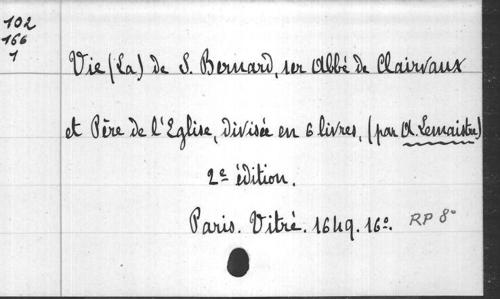 102
166
1
Vie (La) de S. Bernard, 1er Abbé de Clairvaux
et Père de l'Eglise, divisée en 6 livres, (par A. Lemaistre)
2e édition.
Paris. Vitré. 1649. 16o. RP 8o